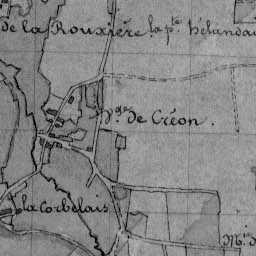 de la Rouxière la p.te Hélandai
V.ge de Créon.
la Corbelais
M.n d